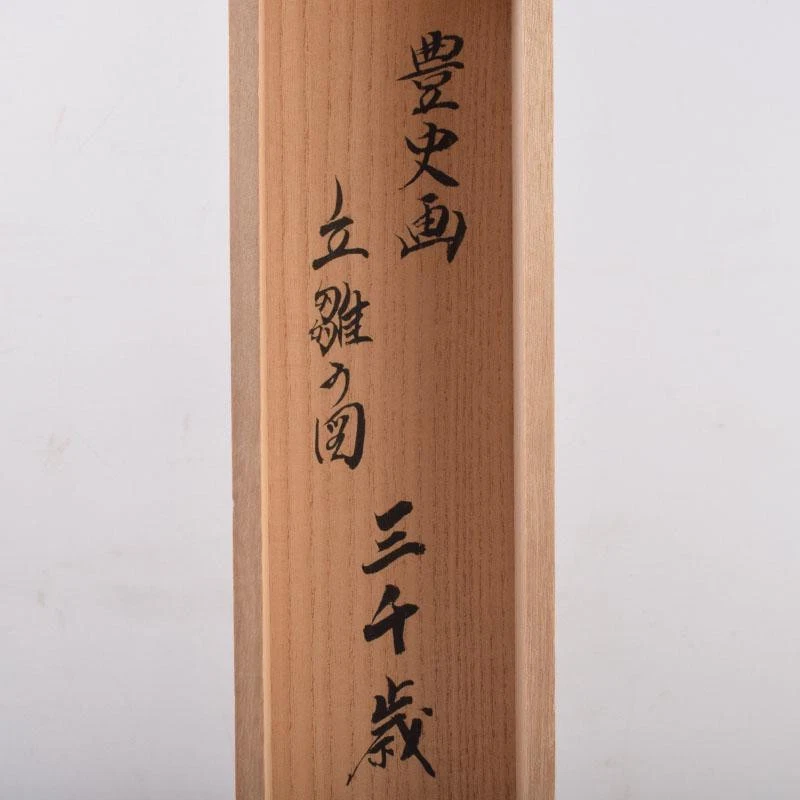 豊史画
立雛の図
三千歳